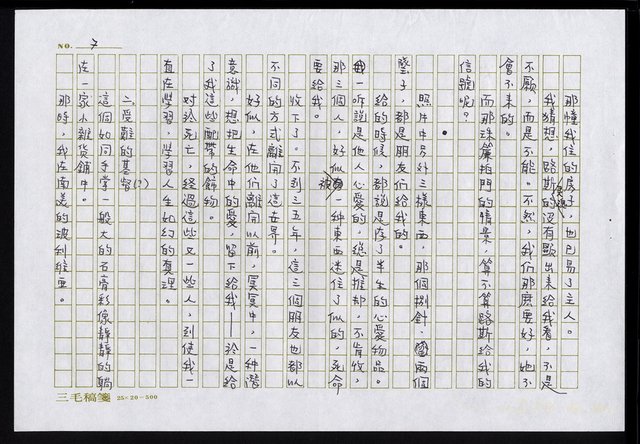 NO. 7
那幢我住的房子，也已易了主人。
我猜想，路斯的沒有顯出來給我看，不是
不願，而是不能。不然，我們那麼要好，她不
會不來的。
而那珠簾拍門的情景，算不算路斯給我的
信號呢？
照片中另外三樣東西，那個別針、墜兩個
墜子，都是朋友們給我的。
給的時候，都說是存了半生的心愛物品。
我一聽說是他人心愛的，總是推卻，不肯收，
那三個人，好似被一種東西迷住了似的，死命
要給我。
收下了。不到三五年，這三個朋友也都以
不同的方式離開了這世界。
好似，在他們離開以前，冥冥中，一種潛
意識，想把生命中的愛，留下給我——於是給
了我這些配帶的飾物。
對於死亡，經過這些又一些人，到使我一
直在學習，學習人生如幻的真理。
二、受難的基督(?)
這個如同手掌一般大的石膏彩像靜靜的躺
在一家小雜貨鋪中。
那時，我在南美的玻利維亞。
三毛稿箋 25×20=500